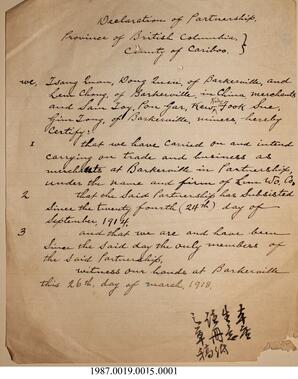 Declaration of Partnership.
Province of British Columbia }
County of Cariboo.
We, Tsang Quan, Dong Quen, of Barkerville, and
Lem Chong, of Barkerville, in China merchants
and Sam Toy, Pon Gar, Fook Sue,
Ginn Tong, of Barkerville, miners, hereby
Certify:
1 that we have Carried on and intend
carrying on trade and business as
merchants at Barkerville in Partnership,
under the name and firm of Lun Wo, Co,
2 that the Said Partnership has Subsisted
Since the twenty fourth (24th) day of
September 1914.
3 and that we are and have been
Since the Said day the only members of
the Said Partnership,
witness our hands at Barkerville
this 26th, day of march, 1918.
1987.0019.0015.0001